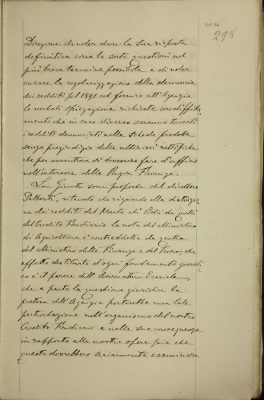 298
Direzione di voler dare la sua risposta
definitiva circa le sorte questioni nel
più breve termine possibile e di voler
curare la regolarizzazione della denuncia
dei redditi pel 1891 col fornire all'Agenzia
le verbali spiegazioni richieste con diffida-
mento che in caso diverso saranno tassati
i redditi denunciati nella scheda prodotta
senza pregiudizio delle ulteriori rettifiche
che per avventura si dovessero fare d'ufficio
nell'interesse della Regia Finanza.
La Giunta come proposta del direttore
ritenuto che riguardo alla distinzio-
ne dei redditi del Monte dei Paschi da quelli
del Credito Fondiario la nota del Ministero
di Agricoltura è contraddetta da quella
del Ministero delle Finanze e del Tesoro, che
affatto destituita d'ogni fondamento giuridi-
co è il parere dell'Avvocatura Erariale
che a parte la questione giuridica la
pretesa dell'Agenzia porterebbe una tale
perturbazione nell'organismo del nostro
Credito Fondiario e nelle sue conseguenze
in rapporto alle nostre
queste dovrebbero seriamente esaminare